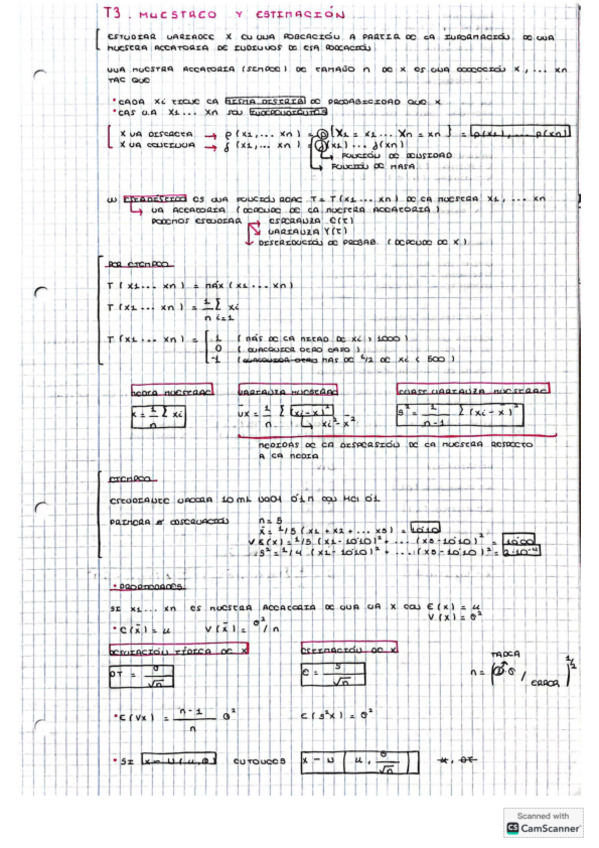 T3. MUESTREO Y ESTIMACIÓN
ESTUDIAR VARIABLE X EN UNA POBLACIÓN A PARTIR DE LA INFORMACIÓN DE UNA
MUESTRA ALEATORIA DE INDIVIDUOS DE ESA POBLACIÓN
UNA MUESTRA ALEATORIA (SIMPLE) DE TAMAÑO n DE X ES UNA COLECCIÓN X1 ... Xn
TAL QUE
• CADA Xi TIENE LA MISMA DISTRIB DE PROBABILIDAD QUE X
• LAS V.A X1 ... Xn SON INDEPENDIENTES
X VA DISCRETA → p (x1, ... xn) = P{X1 = x1 ... Xn = xn} = p(x1), ... p(xn)
X VA CONTINUA → f (x1, ... xn) = f(x1) ... f(xn)
FUNCIÓN DE DENSIDAD
FUNCIÓN DE MASA
UN ESTADÍSTICO ES UNA FUNCIÓN REAL T = T(x1 ... xn) DE LA MUESTRA X1, ... xn
VA ALEATORIA (DEPENDE DE LA MUESTRA ALEATORIA)
PODEMOS ESTUDIAR ESPERANZA E(T)
VARIANZA V(T)
DISTRIBUCIÓN DE PROBAB (DEPENDE DE X)
POR EJEMPLO
T (x1 ... xn) = MÁX (x1 ... xn)
T (x1 ... xn) = 1/n Σ i=1 xi
T (x1 ... xn) = 1 (MÁS DE LA MITAD DE xi > 1000)
0 (CUALQUIER OTRO CASO)
-1 (CUALQUIER OTRO MÁS DE 1/2 DE xi < 500)
MEDIA MUESTRAL VARIANZA MUESTRAL CUASIVARIANZA MUESTRAL
x̄ = 1/n Σ xi Vx = 1/n Σ (xi - x̄)² s² = 1/n-1 Σ (xi - x̄)²
xi² - x̄²
MEDIDAS DE LA DISPERSIÓN DE LA MUESTRA RESPECTO
A LA MEDIA
EJEMPLO
ESTUDIANTE VALORA 10 mL NaOH 0'1 n CON HCl 0'1
PRIMERA OBSERVACIÓN n = 5
x̄ = 1/5 (x1 + x1 + ... x5) = 10'10
= 1/5 (x1 - 10'10)² + .... (x5 - 10'10)² =
s² = 1/4 (x1 - 10'10)² + .... (x5 - 10'10)² =
• PROPIEDADES
SI x1 ... xn ES MUESTRA ALEATORIA DE UNA VA X CON E(x) = μ
V(x) = σ²
• E(x̄) = μ V(x̄) = σ²/n
DESVIACIÓN TÍPICA DE x̄ ESTIMACIÓN DE x̄
DT = σ/√n e = s/√n
TABLA
n = ( σ / ERROR )
• E(Vx) = n-1/n σ² E(s²x) = σ²
• SI x ~ N(μ, σ) ENTONCES x̄ ~ N (μ, σ/√n)
Scanned with
CS CamScanner